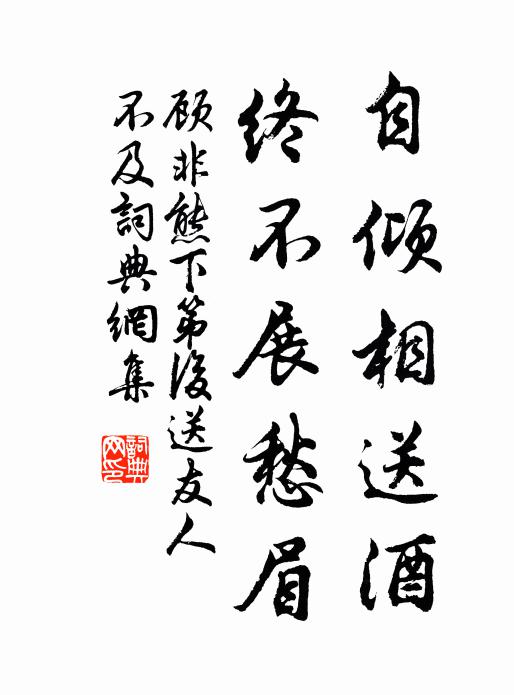 自傾相送酒
終不展愁眉
顧非熊下第後送友人
不及詞典網集
詞典網印